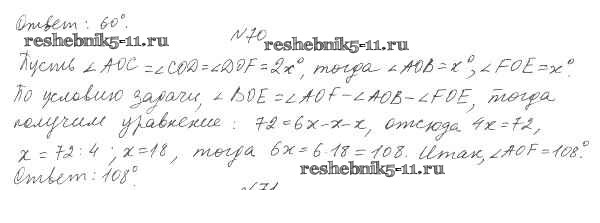 Ответ: 60°.
reshebnik5-11.ru
№70
reshebnik5-11.ru
Пусть ∠AOC=∠COD=∠DOF=2x°, тогда ∠AOB=x°; ∠FOE=x°.
По условию задачи, ∠BOE=∠AOF-∠AOB-∠FOE, тогда
получим уравнение: 72=6x-x-x, отсюда 4x=72,
x=72:4; x=18, тогда 6x=6·18=108. Итак, ∠AOF=108°.
reshebnik5-11.ru
Ответ: 108°.